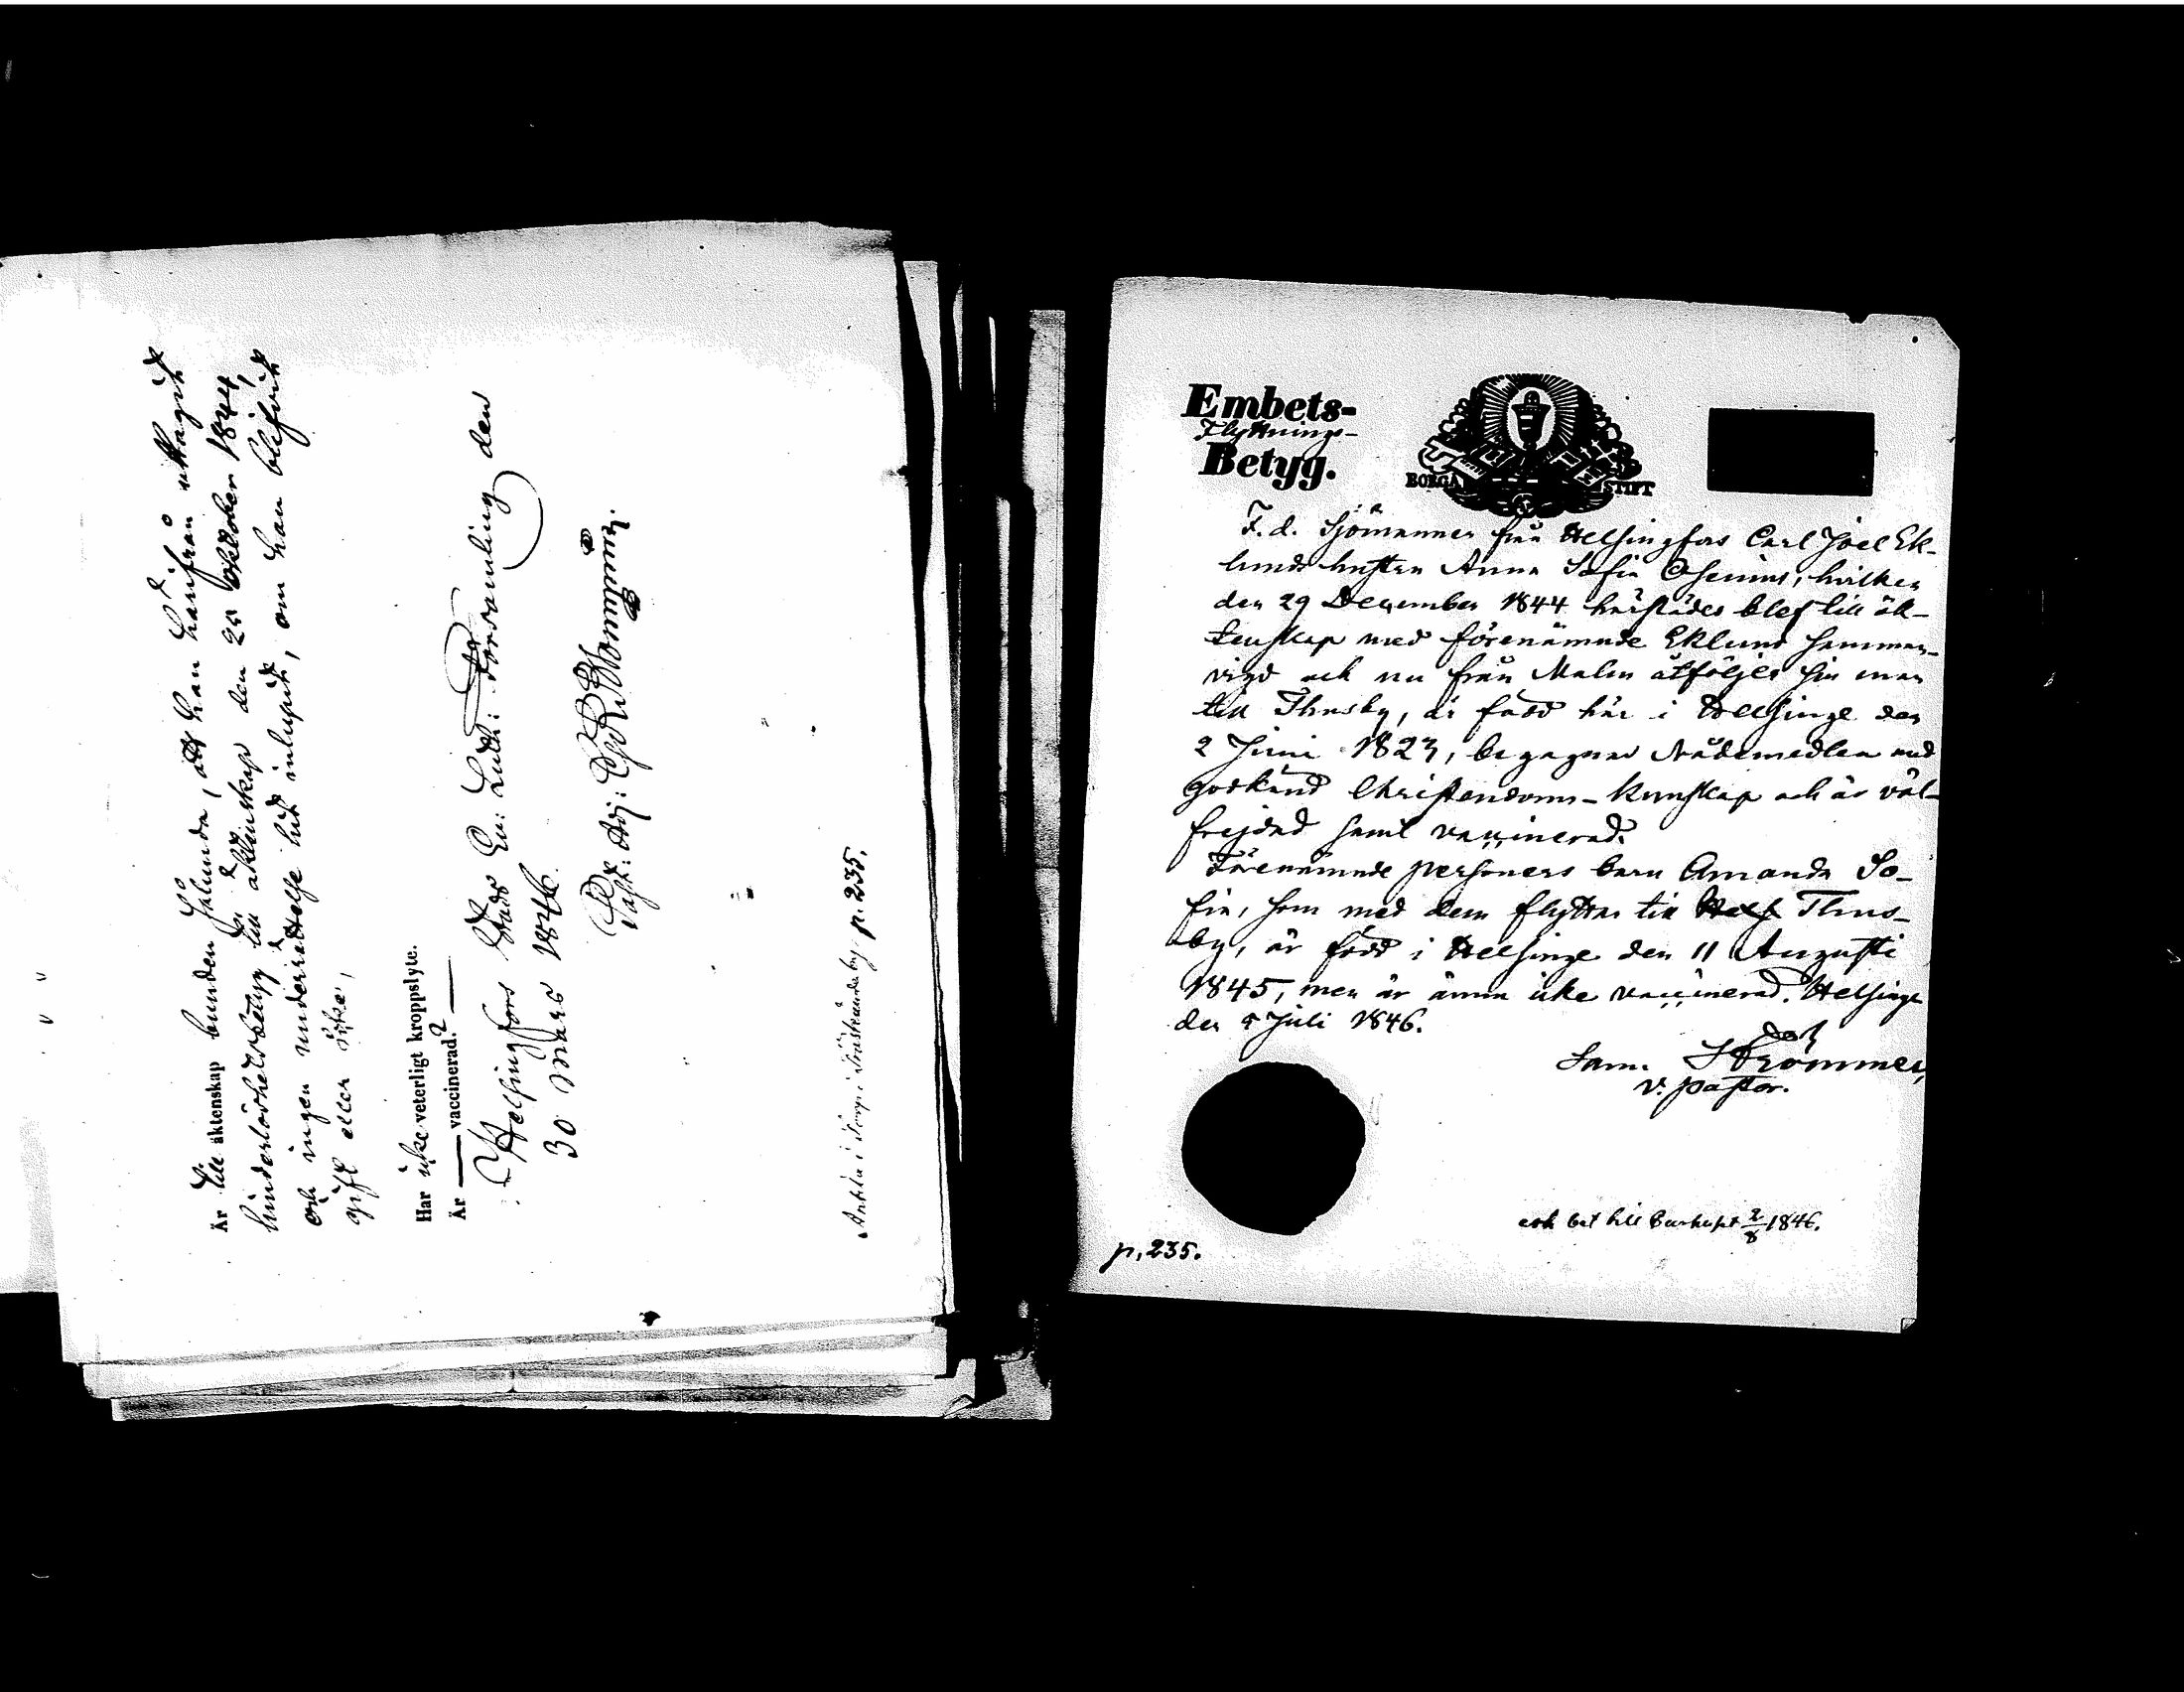 Är till äktenskap bunden sålunda, att han härifrån uttagit
hinderlöshetsbetyg till äktenskap den 25 Oktober 1844,
och ingen underrättelse hit inlupit, om han blifvit
gift eller icke,
Har icke veterligt kroppslyte.
Är —— vaccinerad? ——
Helsingfors Stads Ev: Luth: Församling den
30 Mars 1846.
Past: Adj:
i Träskända by p. 235.
Embets-
Flyttnings-
Betyg.
BORGÅ STIFT
F. d. Sjömannen från Helsingfors Carl Joel Ek-
lunds hustru Anna Sofia hvilken
den 29 December 1844 härstädes blef till äk-
tenskap med förenämnde Eklund samman-
vigd och nu från Malm åtföljer sin man
till Thusby, är född här i Helsinge den
2 Junii 1823, begagnar Nådemedlen med
godkänd Christendoms-kunskap och är väl-
frejdad samt vaccinerad.
Förenämnde personers barn Amanda So-
fia, som med dem flyttar till Helsf Thus-
by, är född i Helsinge den 11 Augusti
1845, men är ännu icke vaccinerad. Helsinge
den 5 Juli 1846.
Sam. Strömmer,
v. pastor.
2/8 1846.
p. 235.